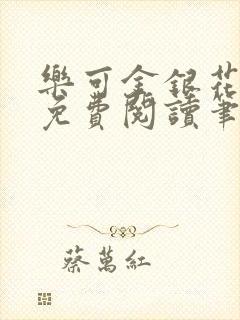 樂可金銀花
免費閱讀筆
蔡萬紅